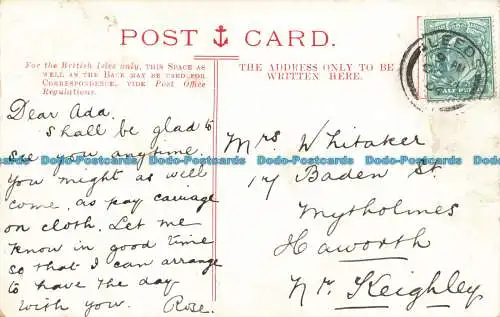 POST CARD.
For the British Isles only, THIS SPACE AS
WELL AS THE BACK MAY BE USED FOR
CORRESPONDENCE, VIDE Post Office
Regulations.
THE ADDRESS ONLY TO BE
WRITTEN HERE.
LEEDS
HALFPENNY
Dear Ada.
Shall be glad to
see you anytime.
You might as well
come, as pay carriage
on cloth. Let me
know in good time
so that I can arrange
to have the day
with you. Rose.
Mrs Whitaker
17 Baden St.
Mytholmes
Haworth
Nr. Keighley
Dodo-Postcards Dodo-Postcards Dodo-Postcards Dodo-Postcards Dodo-Postcards
Dodo-Postcards Dodo-Postcards Dodo-Postcards Dodo-Postcards Dodo-Postcards